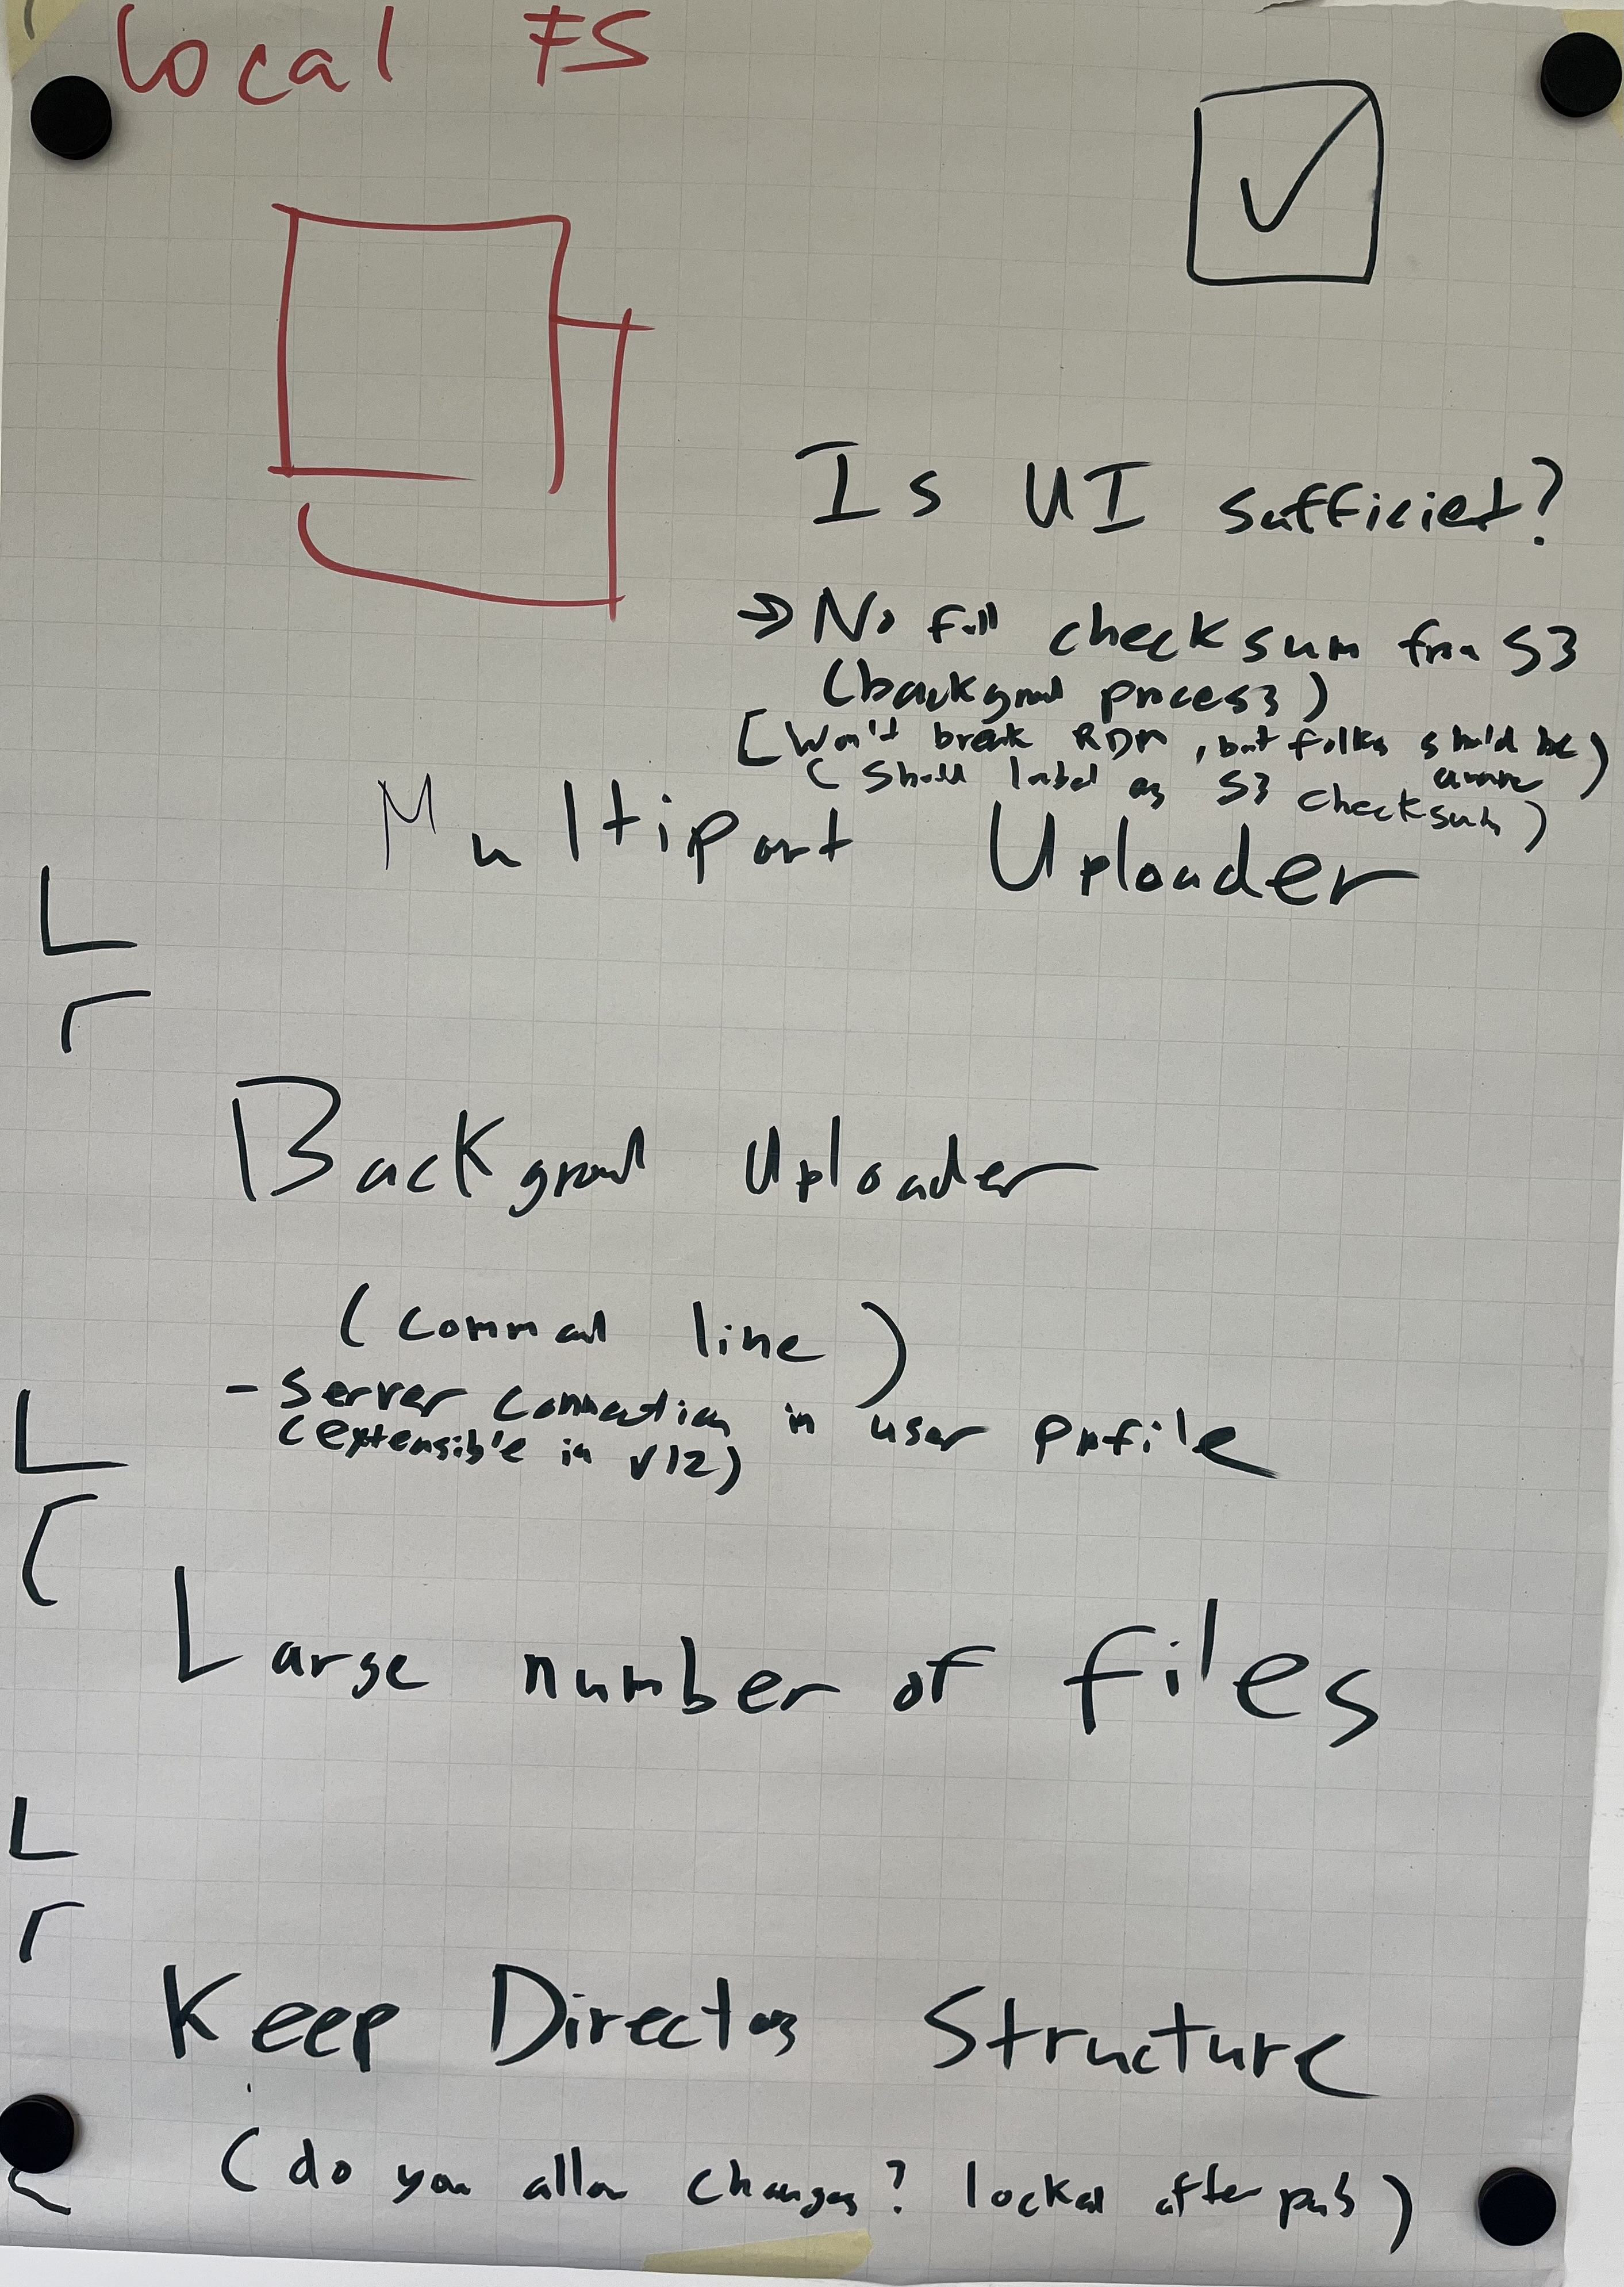 Local FS
Is UI sufficiet?
⇒ No full checksum from S3
(backgroud process)
[Won't break RDM, but folks should be aware)
(should label as S3 checksum)
Multipart Uploader
Backgroud Uploader
(command line)
- Server connection in user profile
(extensible in v12)
Large number of files
Keep Directory Structure
(do you allow changes? locked after pub)